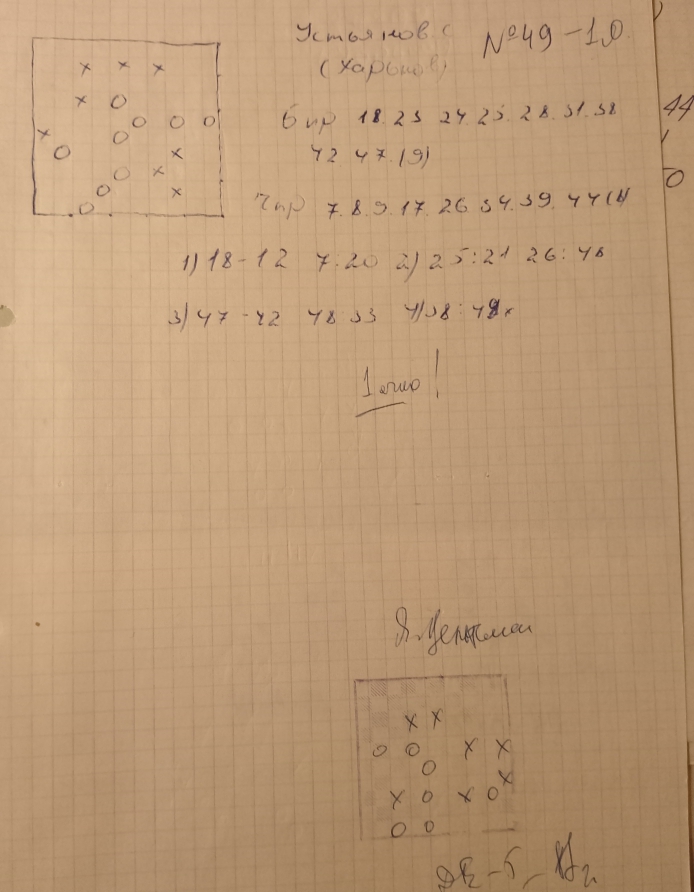 Устьянов С №49 - 1.0.
(Харьков)
44
б пр 18. 23 24. 25. 28. 31. 38
42 47. (9)
0
ч пр 7. 8. 9. 17. 26 34. 39. 44 (8)
1) 18-12 7:20 2) 25:21 26:48
3) 47-42 48:33 4) 38:49x
1 очко!